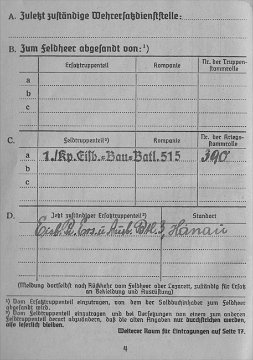 A. Zuletzt zuständige Wehrersatzdienststelle:
B. Zum Feldheer abgesandt von:¹)
Ersatztruppenteil Kompanie Nr. der Truppen-
stammrolle
a
b
c
C. Feldtruppenteil²) Kompanie Nr. der Kriegs-
stammrolle
a 1./Kp. Eisb.=Bau=Batl. 515 390
b
c
D. Jetzt zuständiger Ersatztruppenteil²) Standort
Hanau
(Meldung dortselbst nach Rückkehr vom Feldheer oder Lazarett, zuständig für Ersatz
an Bekleidung und Ausrüstung)
¹) Vom Ersatztruppenteil einzutragen, von dem der Soldbuchinhaber zum Feldheer
abgesandt wird.
²) Vom Feldtruppenteil einzutragen und bei Versetzungen von einem zum anderen
Feldtruppenteil derart abzuändern, daß die alten Angaben nur durchstrichen werden,
also leserlich bleiben.
Weiterer Raum für Eintragungen auf Seite 17.
4